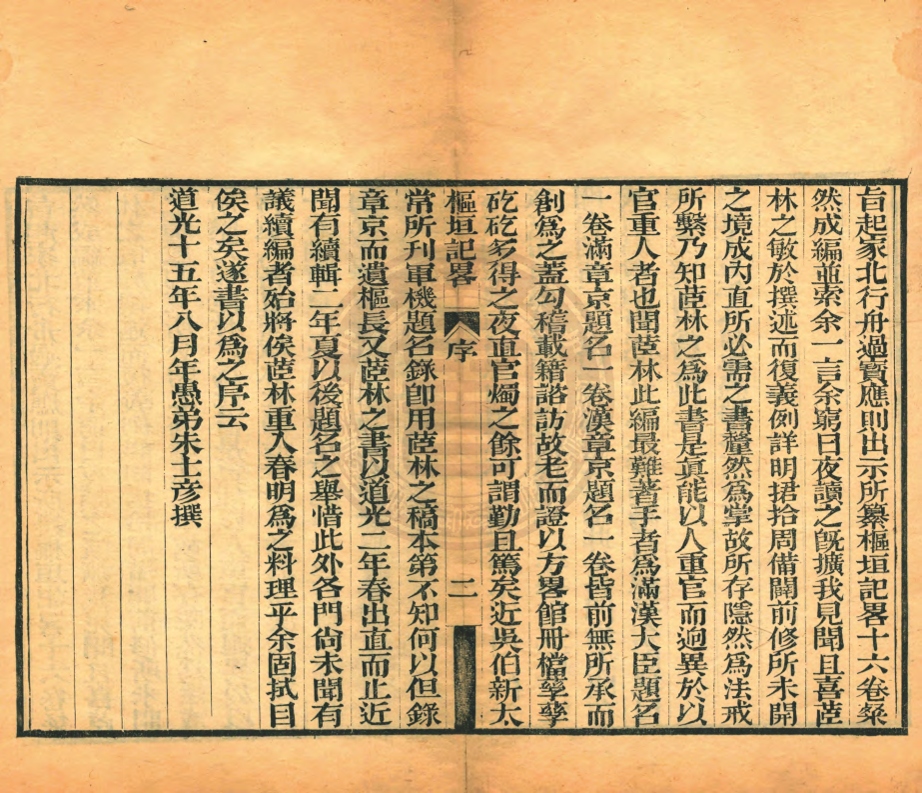 旨起家北行舟過寶應則出示所纂樞垣記畧十六卷粲
然成編並索余一言余窮日夜讀之旣擴我見聞且喜茝
林之敏於撰述而復義例詳明捃拾周備闢前修所未開
之境成內直所必需之書釐然爲掌故所存隱然爲法戒
所繫乃知茝林之爲此書是眞能以人重官而逈異於以
官重人者也聞茝林此編最難著手者爲滿漢大臣題名
一卷滿章京題名一卷漢章京題名一卷皆前無所承而
創爲之蓋勾稽載籍諮訪故老而證以方畧館冊檔孳孳
矻矻多得之夜直官燭之餘可謂勤且篤矣近吳伯新太
樞垣記畧 序 二
常所刊軍機題名錄卽用茝林之稿本第不知何以但錄
章京而遺樞長又茝林之書以道光二年春出直而止近
聞有續輯二年夏以後題名之舉惜此外各門尙未聞有
議續編者始將俟茝林重入春明爲之料理乎余固拭目
俟之矣遂書以爲之序云
道光十五年八月年愚弟朱士彥撰